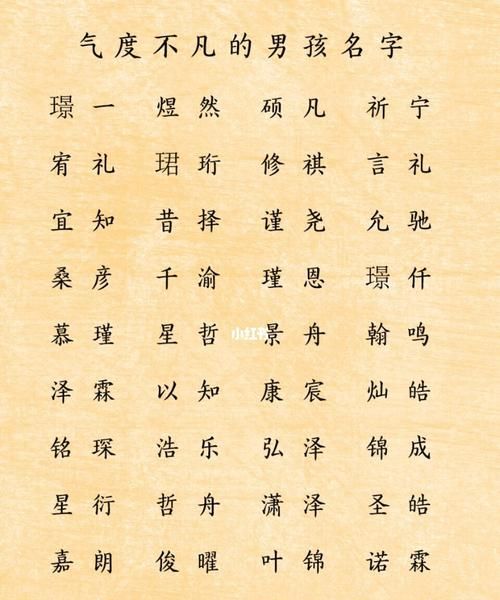 气度不凡的男孩名字
璟一 煜然 硕凡 祈宁
宥礼 珺珩 修祺 言礼
宜知 昔择 谨尧 允驰
桑彦 千渝 瑾恩 璟仟
慕瑾 星哲 景舟 翰鸣
小红书
泽霖 以知 康宸 灿皓
铭琛 浩乐 弘泽 锦成
星衍 哲舟 潇泽 圣皓
嘉朗 俊曜 叶锦 诺霖